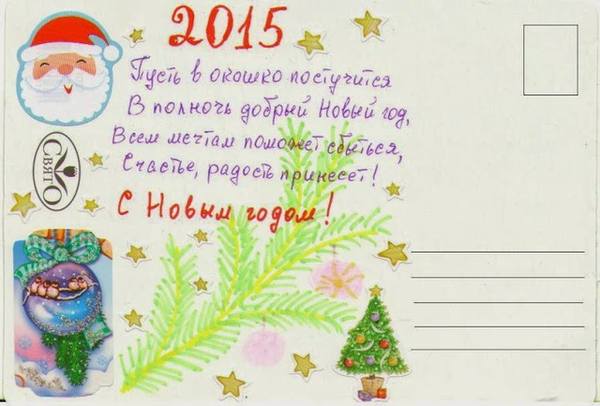 2015
Пусть в окошко постучится
В полночь добрый Новый год,
Всем мечтам поможет сбыться,
Счастье, радость принесет!
С Новым годом!
СВЯТО